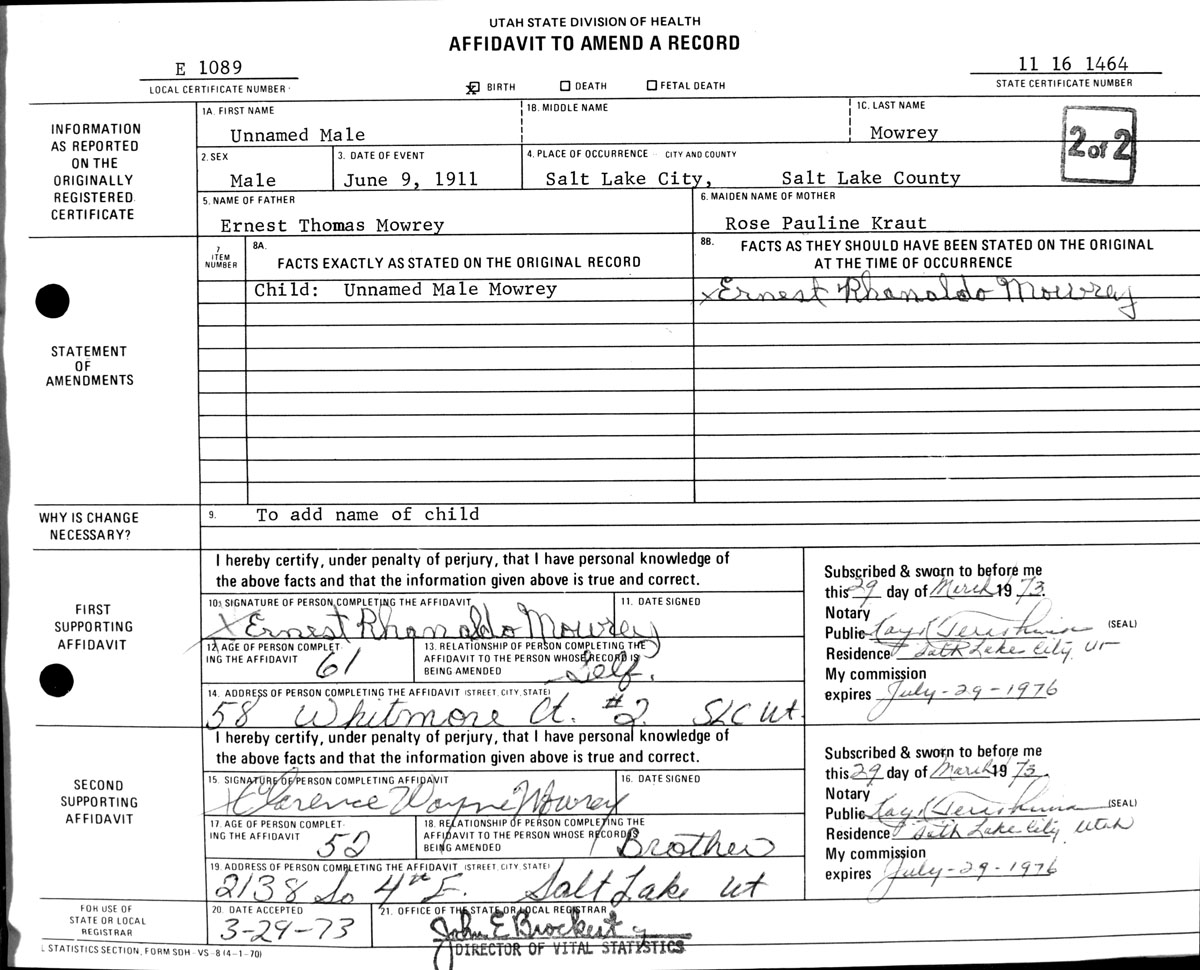 UTAH STATE DIVISION OF HEALTH
AFFIDAVIT TO AMEND A RECORD
E 1089
LOCAL CERTIFICATE NUMBER
☒ BIRTH ☐ DEATH ☐ FETAL DEATH
11 16 1464
STATE CERTIFICATE NUMBER
INFORMATION AS REPORTED ON THE ORIGINALLY REGISTERED CERTIFICATE
1A. FIRST NAME
Unnamed Male
1B. MIDDLE NAME
1C. LAST NAME
Mowrey
2 of 2
2. SEX
Male
3. DATE OF EVENT
June 9, 1911
4. PLACE OF OCCURRENCE CITY AND COUNTY
Salt Lake City, Salt Lake County
5. NAME OF FATHER
Ernest Thomas Mowrey
6. MAIDEN NAME OF MOTHER
Rose Pauline Kraut
STATEMENT OF AMENDMENTS
7 ITEM NUMBER
8A. FACTS EXACTLY AS STATED ON THE ORIGINAL RECORD
8B. FACTS AS THEY SHOULD HAVE BEEN STATED ON THE ORIGINAL AT THE TIME OF OCCURRENCE
Child: Unnamed Male Mowrey
x Ernest Rhonaldo Mowrey
WHY IS CHANGE NECESSARY?
9. To add name of child
FIRST SUPPORTING AFFIDAVIT
I hereby certify, under penalty of perjury, that I have personal knowledge of
the above facts and that the information given above is true and correct.
10. SIGNATURE OF PERSON COMPLETING THE AFFIDAVIT
x Ernest Rhonaldo Mowrey
11. DATE SIGNED
12. AGE OF PERSON COMPLETING THE AFFIDAVIT
61
13. RELATIONSHIP OF PERSON COMPLETING THE AFFIDAVIT TO THE PERSON WHOSE RECORD IS BEING AMENDED
Self.
14. ADDRESS OF PERSON COMPLETING THE AFFIDAVIT (STREET, CITY, STATE)
58 Whitmore Ct. #2 SLC Ut.
Subscribed & sworn to before me
this 29 day of March 19 73.
Notary
Public Kay K Terashima (SEAL)
Residence Salt Lake City, UT
My commission
expires July-29-1976
SECOND SUPPORTING AFFIDAVIT
I hereby certify, under penalty of perjury, that I have personal knowledge of
the above facts and that the information given above is true and correct.
15. SIGNATURE OF PERSON COMPLETING AFFIDAVIT
x Clarence Wayne Mowrey
16. DATE SIGNED
17. AGE OF PERSON COMPLETING THE AFFIDAVIT
52
18. RELATIONSHIP OF PERSON COMPLETING THE AFFIDAVIT TO THE PERSON WHOSE RECORD IS BEING AMENDED
Brother
19. ADDRESS OF PERSON COMPLETING THE AFFIDAVIT (STREET, CITY, STATE)
2138 So 4th E. Salt Lake Ut
Subscribed & sworn to before me
this 29 day of March 19 73.
Notary
Public Kay K Terashima (SEAL)
Residence Salt Lake City, Utah
My commission
expires July-29-1976
FOR USE OF STATE OR LOCAL REGISTRAR
20. DATE ACCEPTED
3-29-73
21. OFFICE OF THE STATE OR LOCAL REGISTRAR
John E Brockert
DIRECTOR OF VITAL STATISTICS
L STATISTICS SECTION, FORM SDH - VS - 8 (4-1-70)